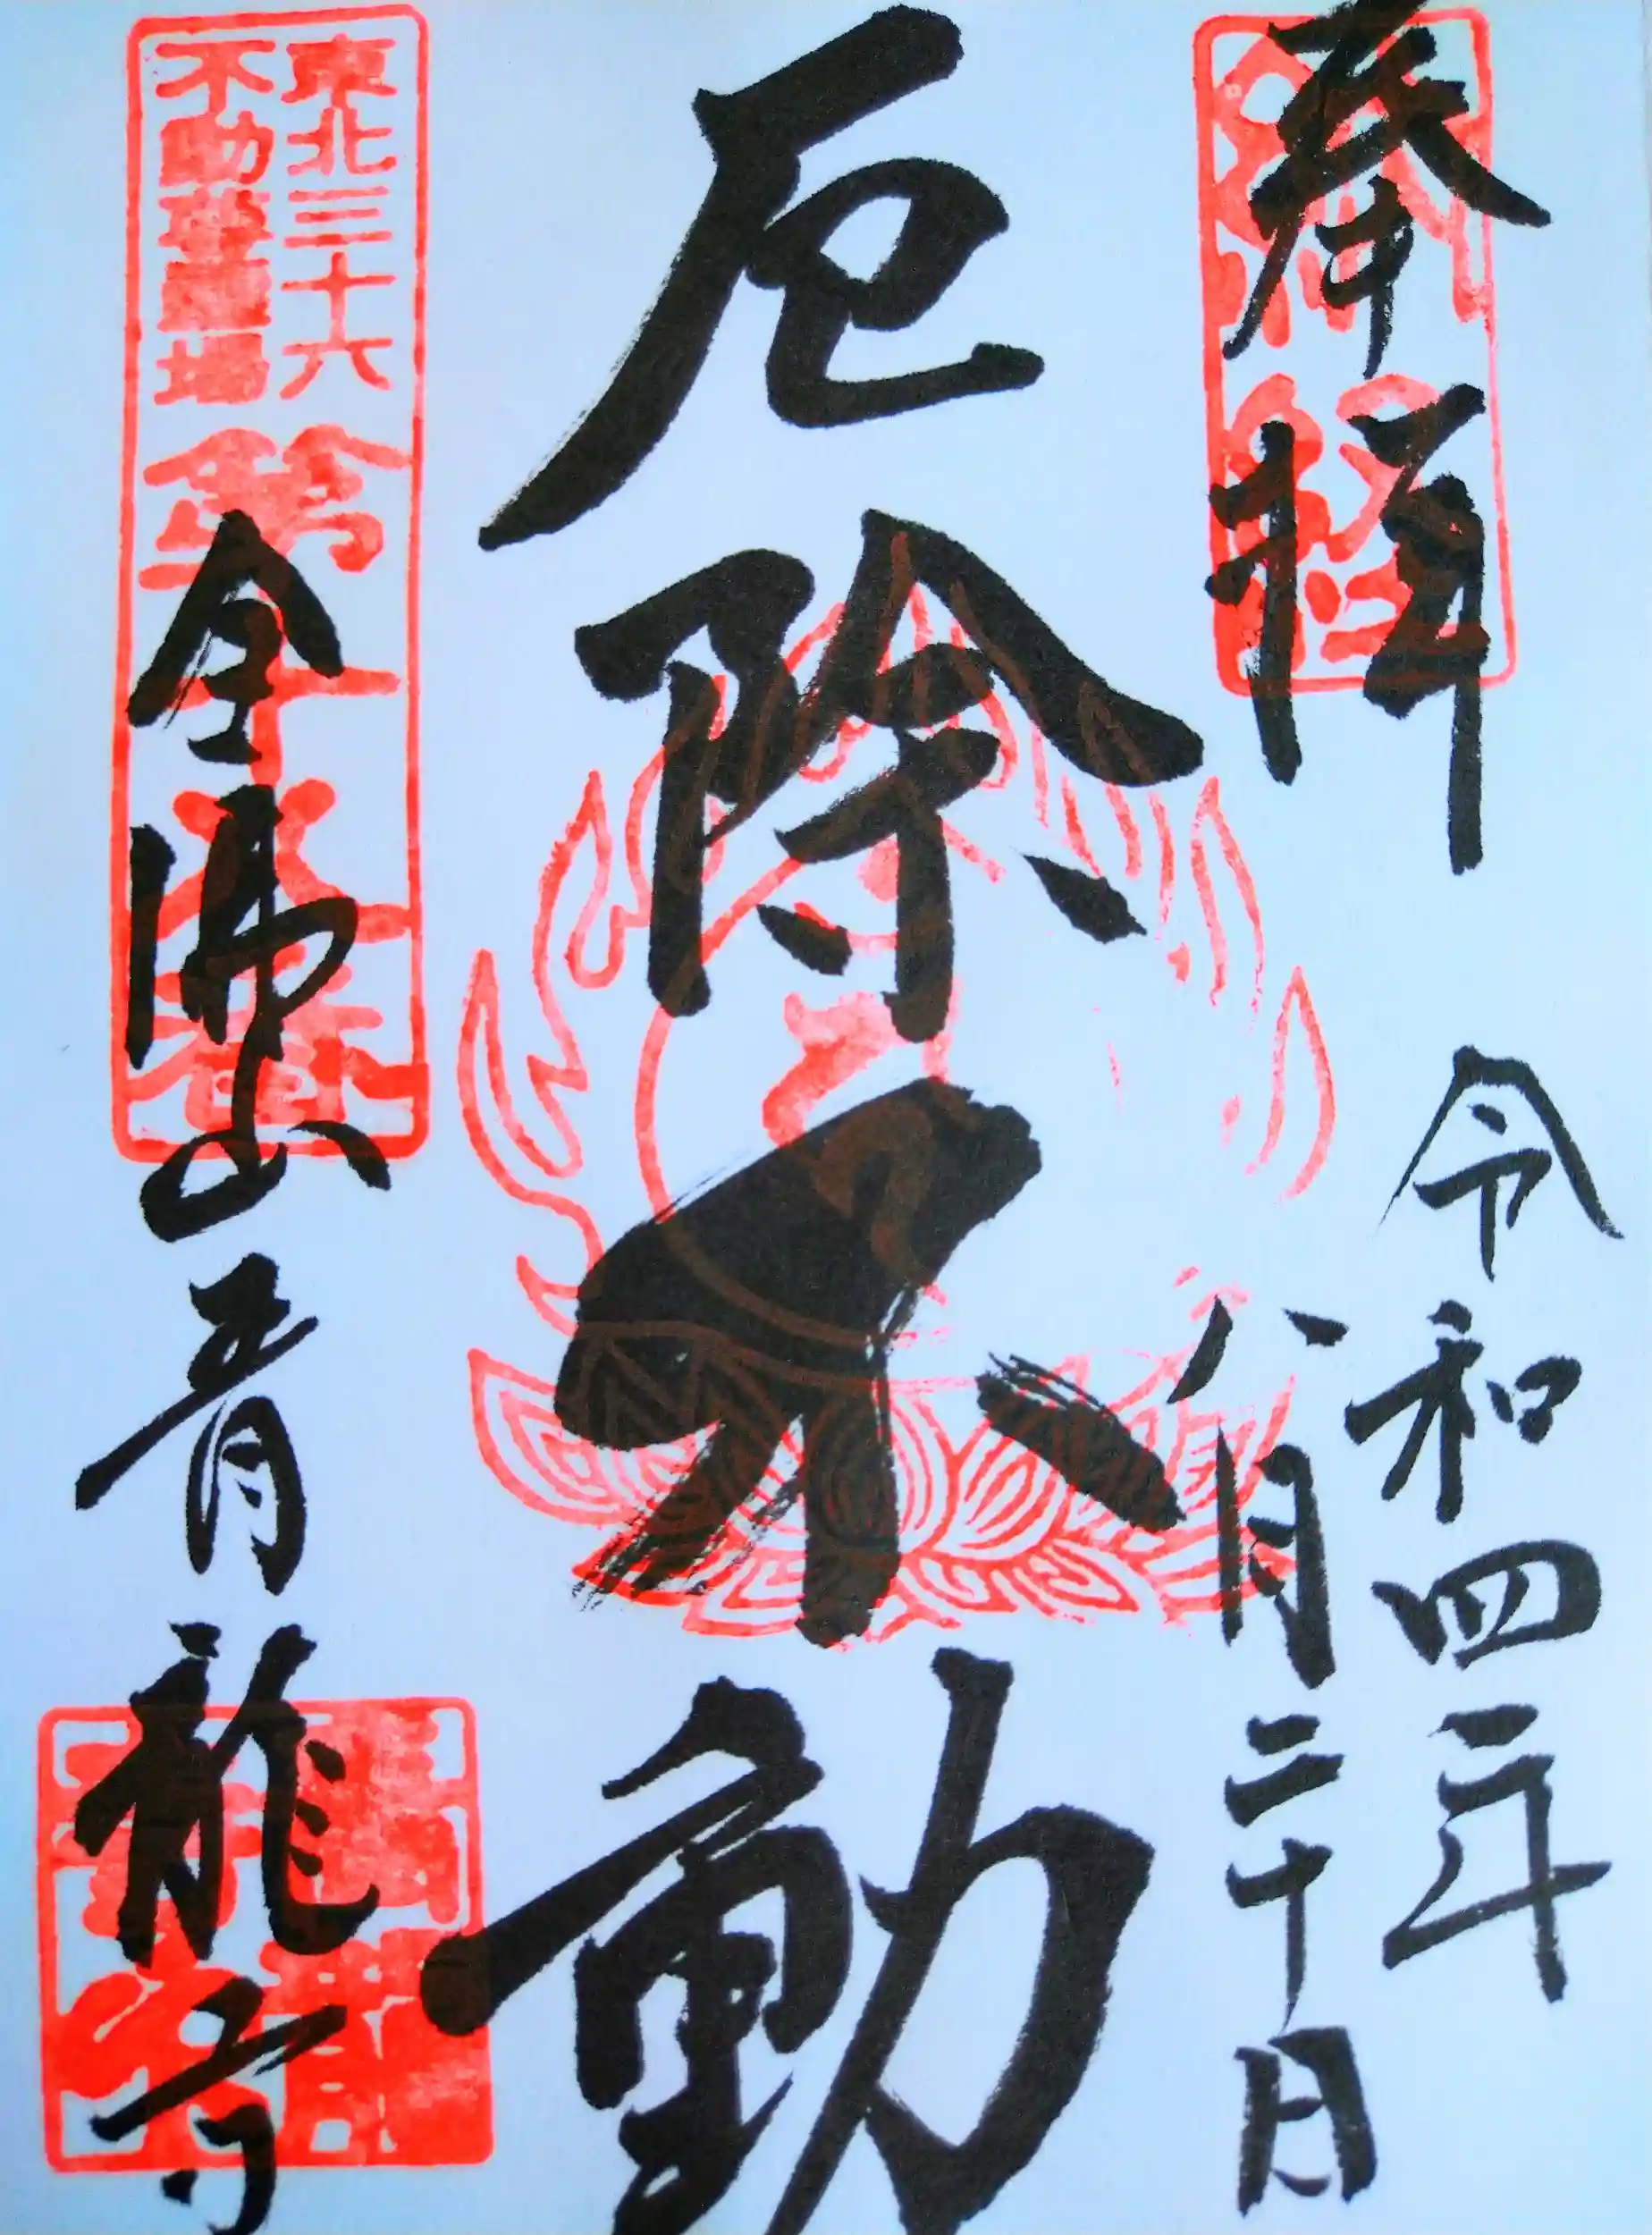 奉拝
令和四年
八月二十日
厄除不動
東北三十六
不動尊霊場
第十六番
金沸山青龍寺